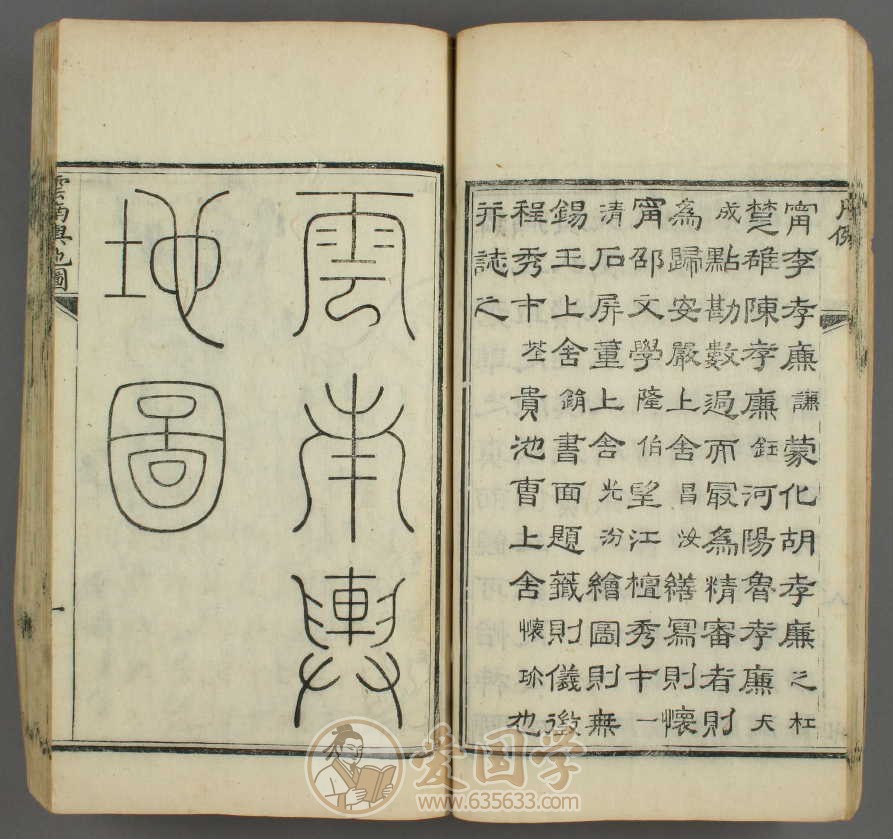 凡例
甯李孝廉謙蒙化胡孝廉之杜
楚雄陳孝廉鈺河陽魯孝廉大
成點勘數過而冣為精審者則
為歸安嚴上舍昌汝繕寫則懷
甯邵文學隆伯望江檀秀才一
清石屏董上舍光汾繪圖則無
錫王上舍書面題籤則儀徵
程秀才荃貴池曹上舍懷珍也
并誌之
雲南輿
地圖
雲南輿地圖
一
爱国学
www.635633.com